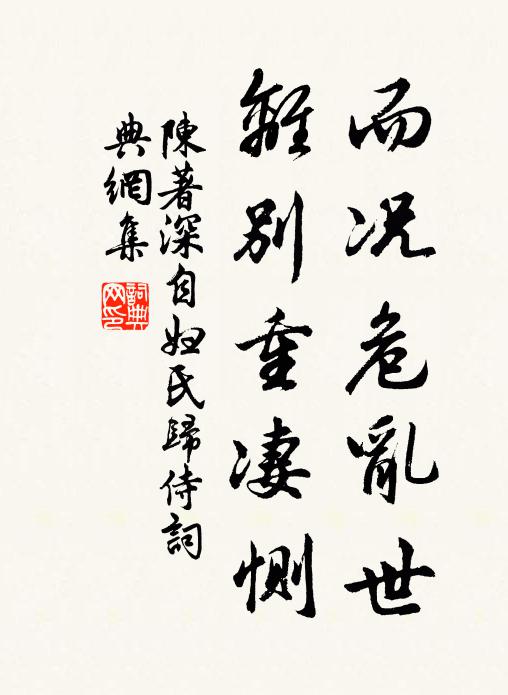 而況危亂世
離別重凄惻
陳著深自妲氏歸侍詞
典網集
詞典網印